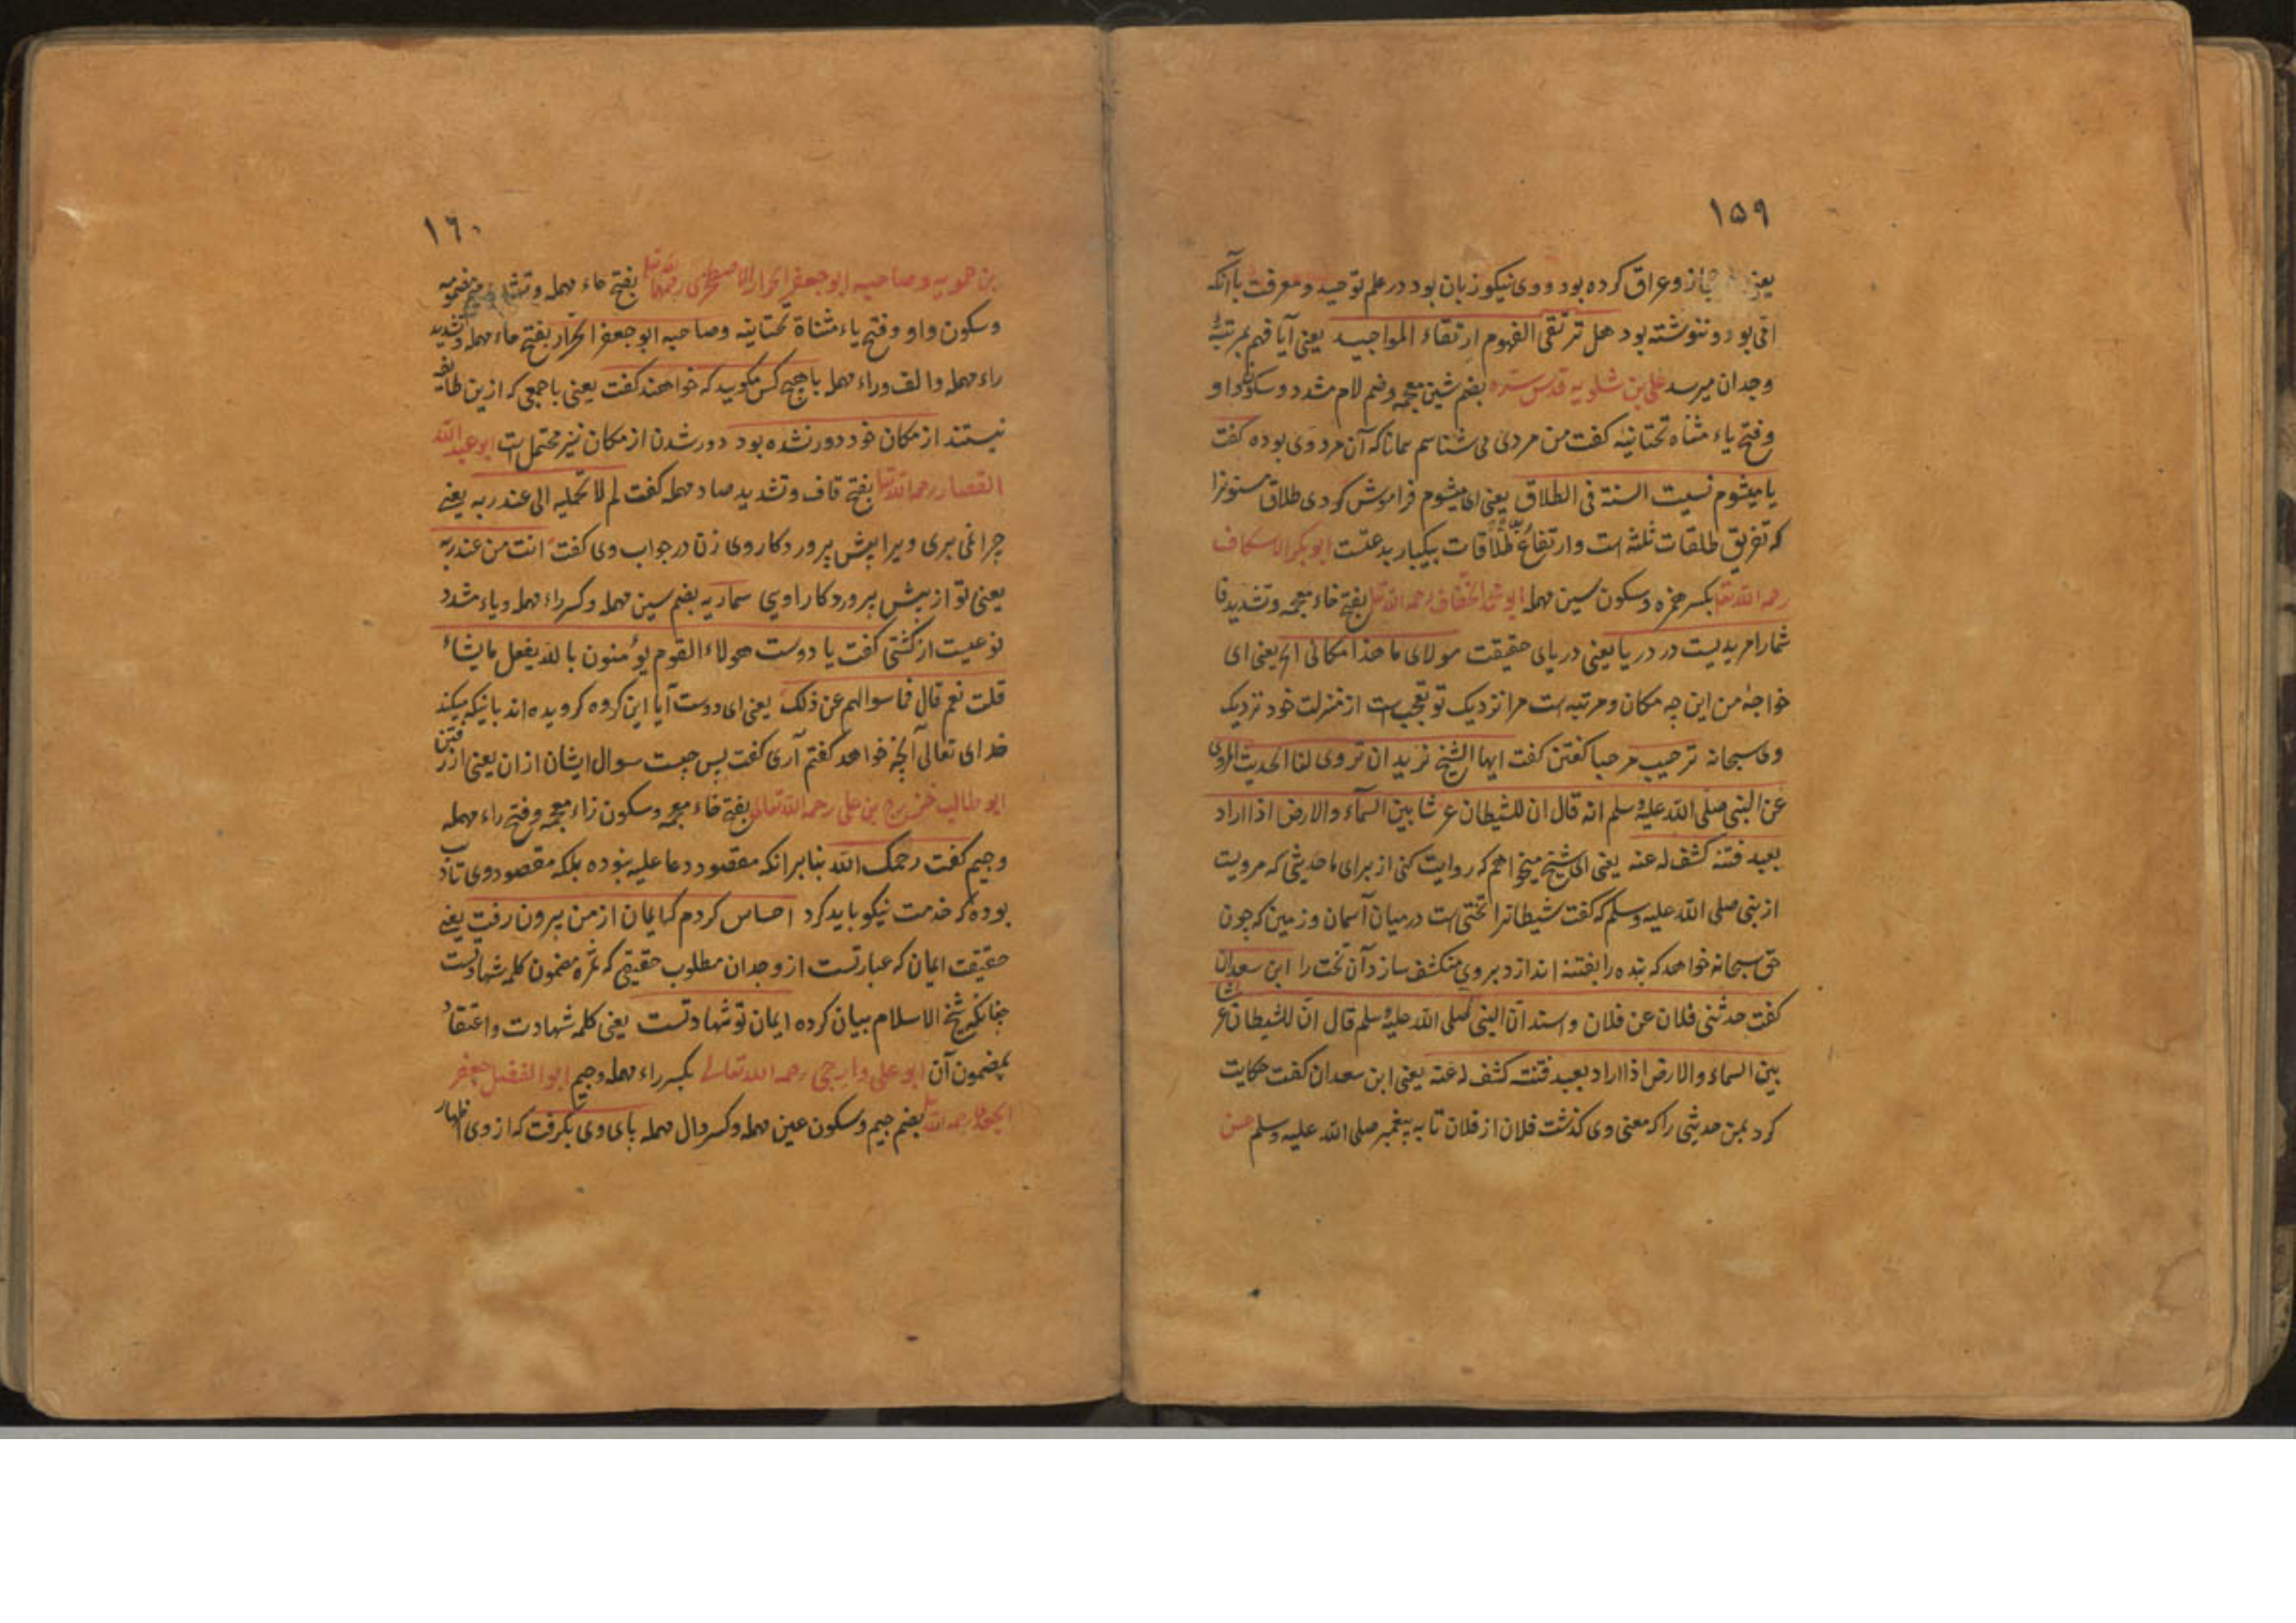 ۱۵۹
حجاز و عراق کرده بود و وی نیکو زبان بود در علم توحید و معرفت باآنکه
امّی بود و ننوشته بود هل ترتقی الفهوم ارتقاء المواجید یعنی آیا فهم بمرتبهٔ
وجدان میرسد علی بن شلویه قدس سره بضم شین معجمه وضم لام مشدد وسکون واو
وفتح یاء مثناه تحتانیه کفت من مردی می شناسم همانا که آن مرد وی بوده کفت
یا میشوم نسیت السنة فی الطلاق یعنی ای میشوم فراموش کردی طلاق مسنونرا
که تفریق طلقات ثلثه است وارتفاع طلاقات بیکبار بدعتست ابوبکر الاسکاف
رحمه الله تعا بکسر همزه وسکون سین مهمله ابو الخفاف رحمه الله تعا بفتح خاء معجمه وتشدید فا
شمارا مریدیست در دریا یعنی دریای حقیقت مولای ما هذا مکانی الخ یعنی ای
خواجهٔ من این چه مکان ومرتبه است مرا نزدیک تو تعجب است از منزلت خود نزدیک
وی سبحانه ترحیب مرحبا کفتن کفت ایها الشیخ نرید ان تروی لنا الحدیث المروی
عن النبی صلی الله علیه وسلم انه قال ان للشیطان عرشا بین السماء والارض اذا اراد
بعبد فتنة کشف له عنه یعنی ای شیخ میخواهم که روایت کنی از برای ما حدیثی که مرویست
از نبی صلی الله علیه وسلم که کفت شیطانرا تختی است درمیان آسمان وزمین که چون
حق سبحانه خواهد که بنده را بفتنه اندازد بروی منکشف سازد آن تخت را ابن سعدان
کفت حدثنی فلان عن فلان واسند ان النبی صلی الله علیه وسلم قال ان للشیطان عرشا
بین السماء والارض اذا اراد بعبد فتنة کشف له عنه یعنی ابن سعدان کفت حکایت
کرد بمن حدیثی را که معنی وی کذشت فلان از فلان تا به پیغمبر صلی الله علیه وسلم حسن
۱۶۰
بن حمویه وصاحبه ابوجعفر الحرار الاصطخری رحمهما الله تعا بفتح حاء مهمله وتشدید میم مضمومه
وسکون واو وفتح یاء مثناة تحتانیه وصاحبه ابوجعفر الحرار بفتح حاء مهمله وتشدید
راء مهمله والف وراء مهمله باهیچ کس مکویید که خواهند کفت یعنی با جمعی که ازین طایفه
نیستند از مکان خود دور نشده بود دور شدن از مکان نیز محتمل است ابو عبدالله
القصار رحمه الله تعا بفتح قاف وتشدید صاد مهمله کفت لم لا تحملیه الی عند ربه یعنی
چرا نمی بری ویرا پیش پروردکار وی زن در جواب وی کفت انت من عند ربه
یعنی تو از پیش پروردکار اویی سماریه بضم سین مهمله وکسر راء مهمله ویاء مشدد
نوعیست از کشتی کفت یا دوست هولاء القوم یؤمنون بالله یفعل ما یشاء
قلت نعم قال فما سوالهم عن ذلک یعنی ای دوست آیا این کروه کرویده اند باینکه میکند
خدای تعالی آنچه خواهد کفتم آری کفت پس چیست سوال ایشان ازان یعنی از رفتن
ابو طالب خزرج بن علی رحمه الله تعالی بفتح خاء معجمه وسکون زاء معجمه وفتح راء مهمله
وجیم کفت رحمک الله بنابر انکه مقصود دعا علیه نبوده بلکه مقصود وی تادیب
بوده که خدمت نیکو باید کرد احساس کردم که ایمان از من بیرون رفت یعنی
حقیقت ایمان که عبارتست از وجدان مطلوب حقیقی که ثمره مضمون کلمه شهادتست
چنانکه شیخ الاسلام بیان کرده ایمان تو شهادتست یعنی کلمه شهادت واعتقاد
بمضمون آن ابو علی وارجی رحمه الله تعالی بکسر راء مهمله وجیم ابو الفضل جعفر
الجعدی رحمه الله تعا بضم جیم وسکون عین مهمله وکسر دال مهمله بای وی بکرفت که از وی اظهار